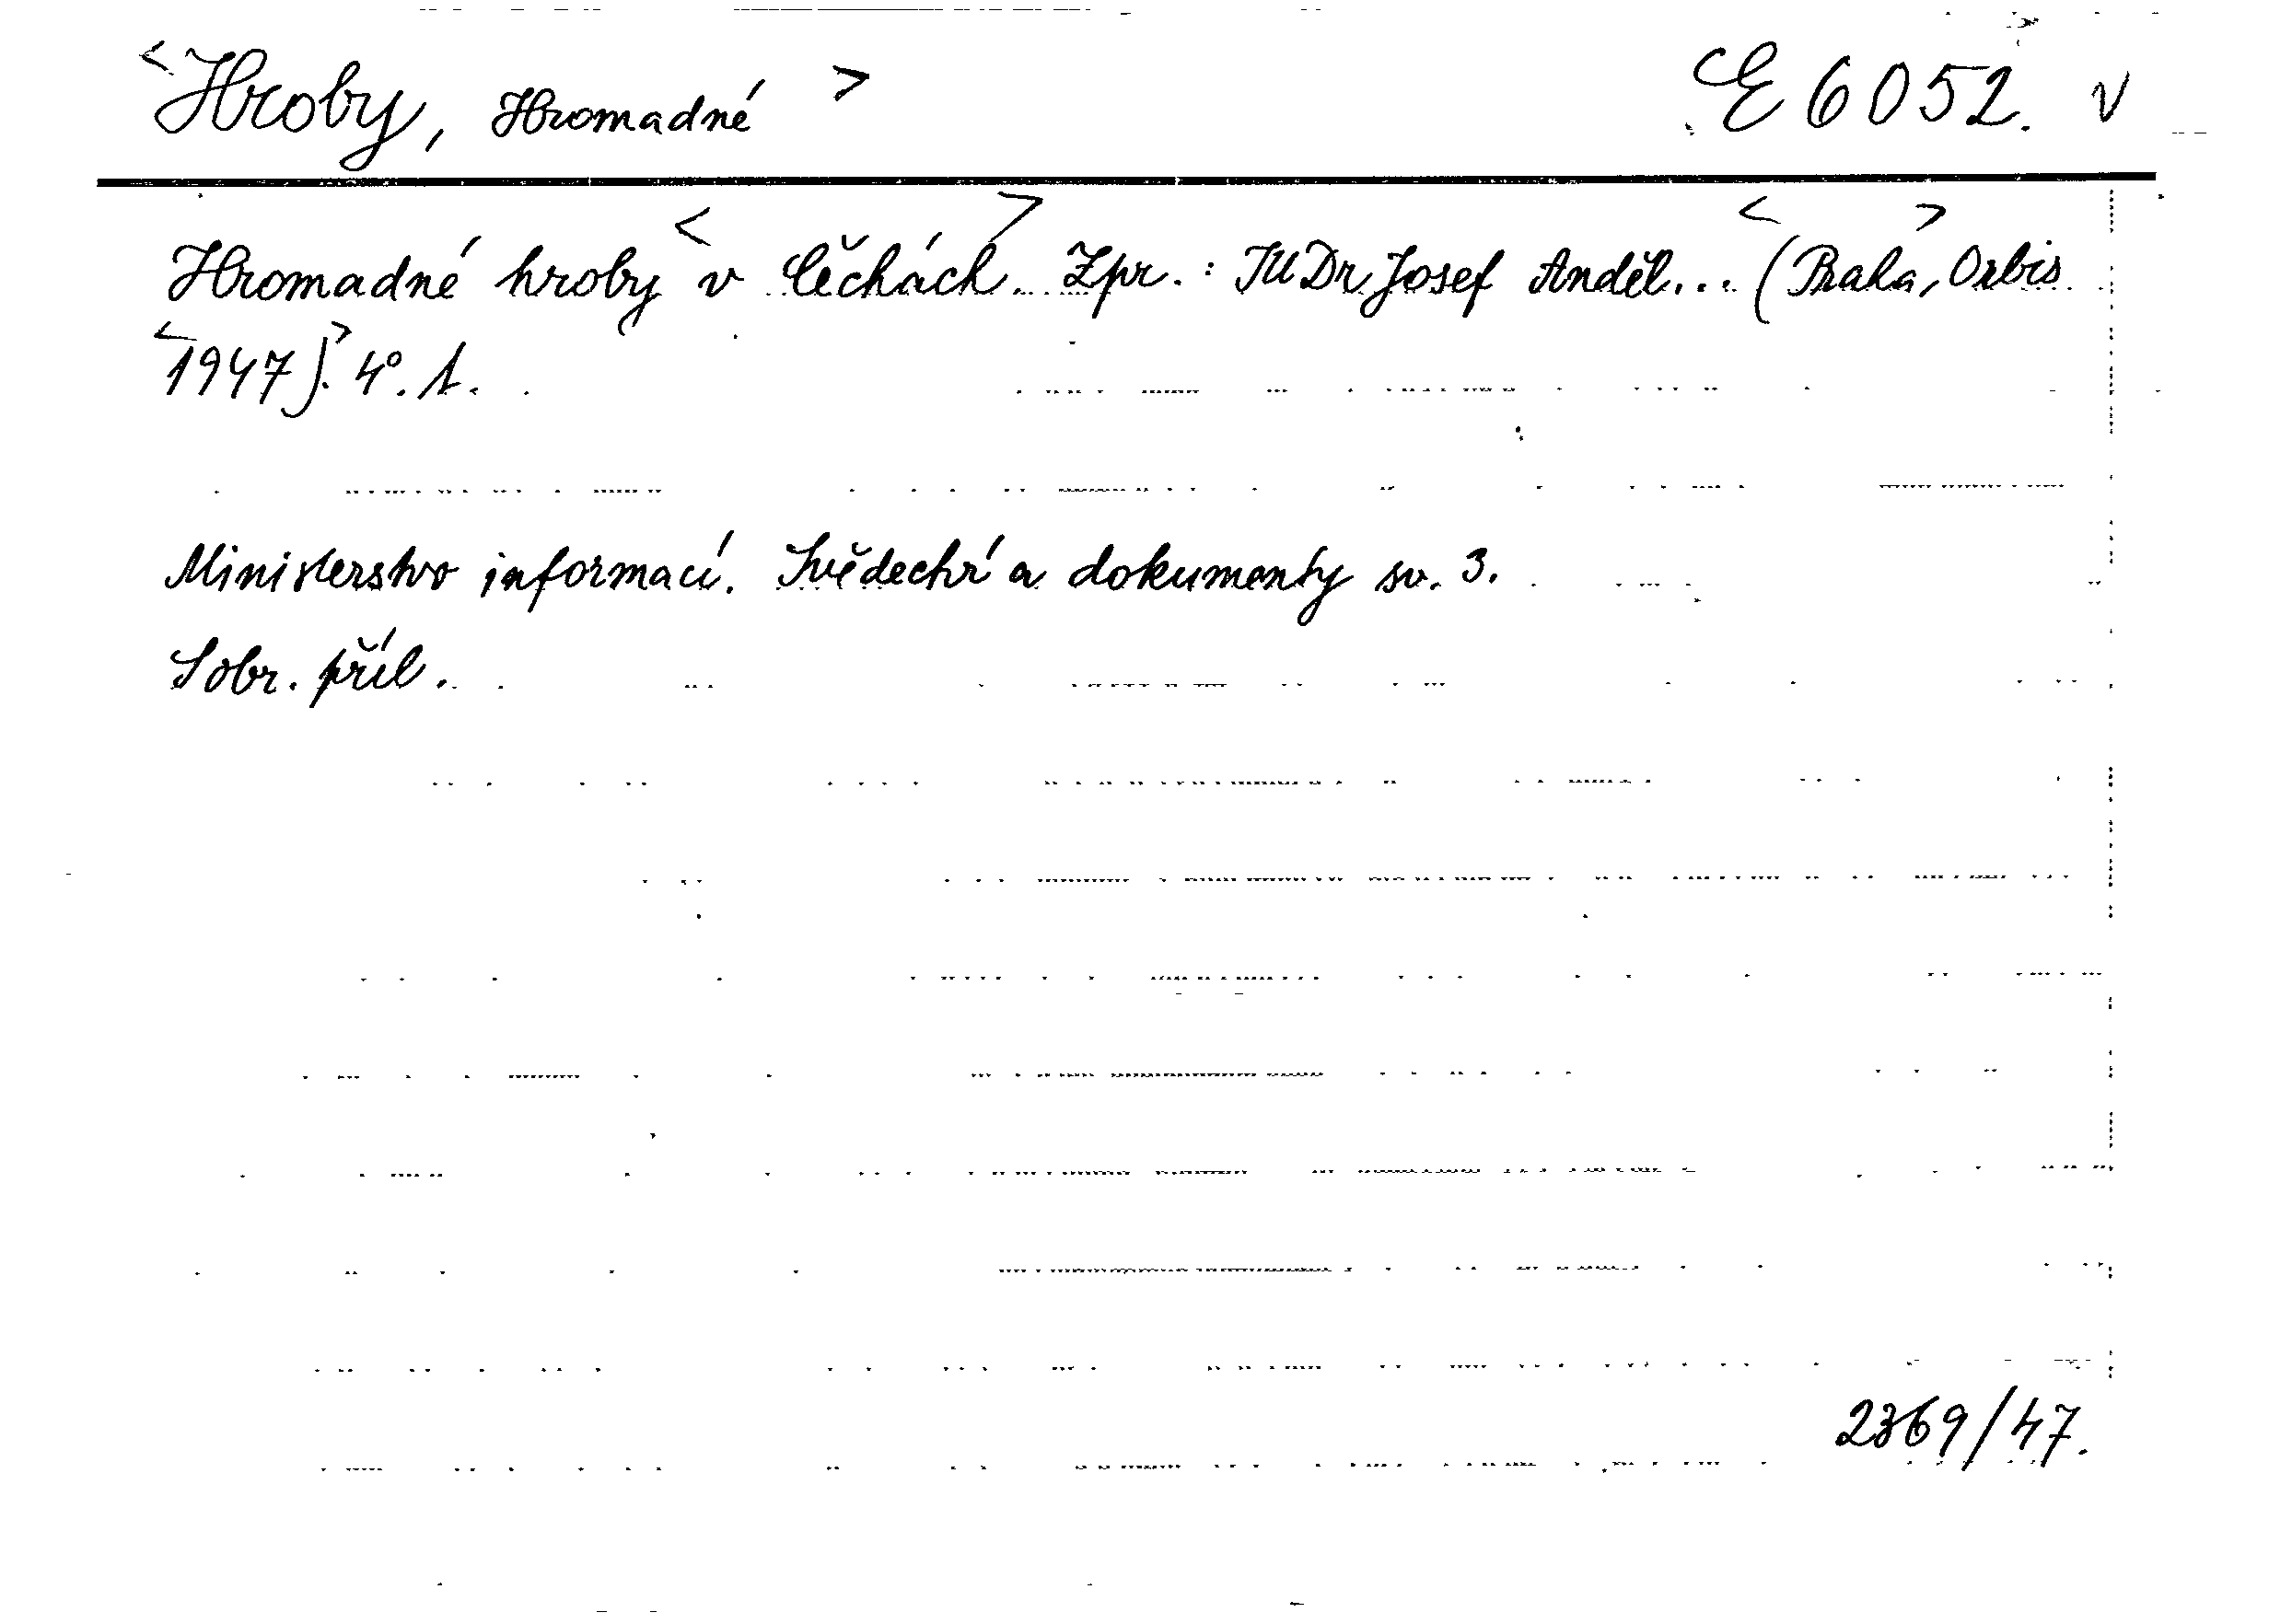 <Hroby, Hromadné> E 6052. v
Hromadné hroby v <Čechách>. Zpr.: JUDr Josef Anděl... (<Praha>, Orbis
<1947)>. 4°. 1.
Ministerstvo informací. Svědectví a dokumenty sv. 3.
S obr. příl.
2369/47.